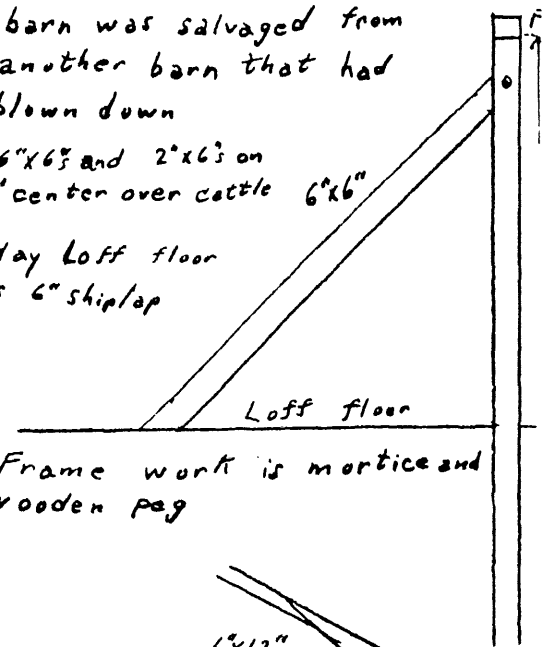 barn was salvaged from
another barn that had
blown down
6"x6"s and 2"x6's on
center over cattle
6"x6"
Hay Loff floor
6" shiplap
Loff floor
Frame work is mortice and
wooden peg
6"x12"